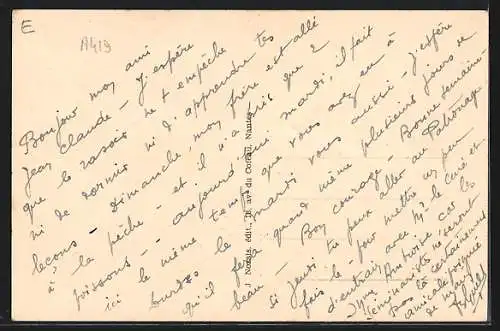 E
A413
Bonjour mon ami
Jean Claude - J'espère
que le rasoir ne t'empêche
ni de dormir ni d'apprendre tes
leçons - Dimanche, mon frère est allé
à la pêche - et il n'a pris que 2
poissons - aujourd'hui mardi, il fait
ici le même temps que vous avez eu à
le mardi vous aussi - J'espère
qu'il fera quand même plusieurs jours de
beau - Bon courage - Bonne semaine -
si jeudi tu peux aller au Patronage
fais le - pour mettre un peu
d'entrain avec Mr le curé et
Ambroise car les
séminaristes ne seront
pas là certainement
amicale poignée
de main
J. Nozais, édit., 10, av. du Coteau, Nantes